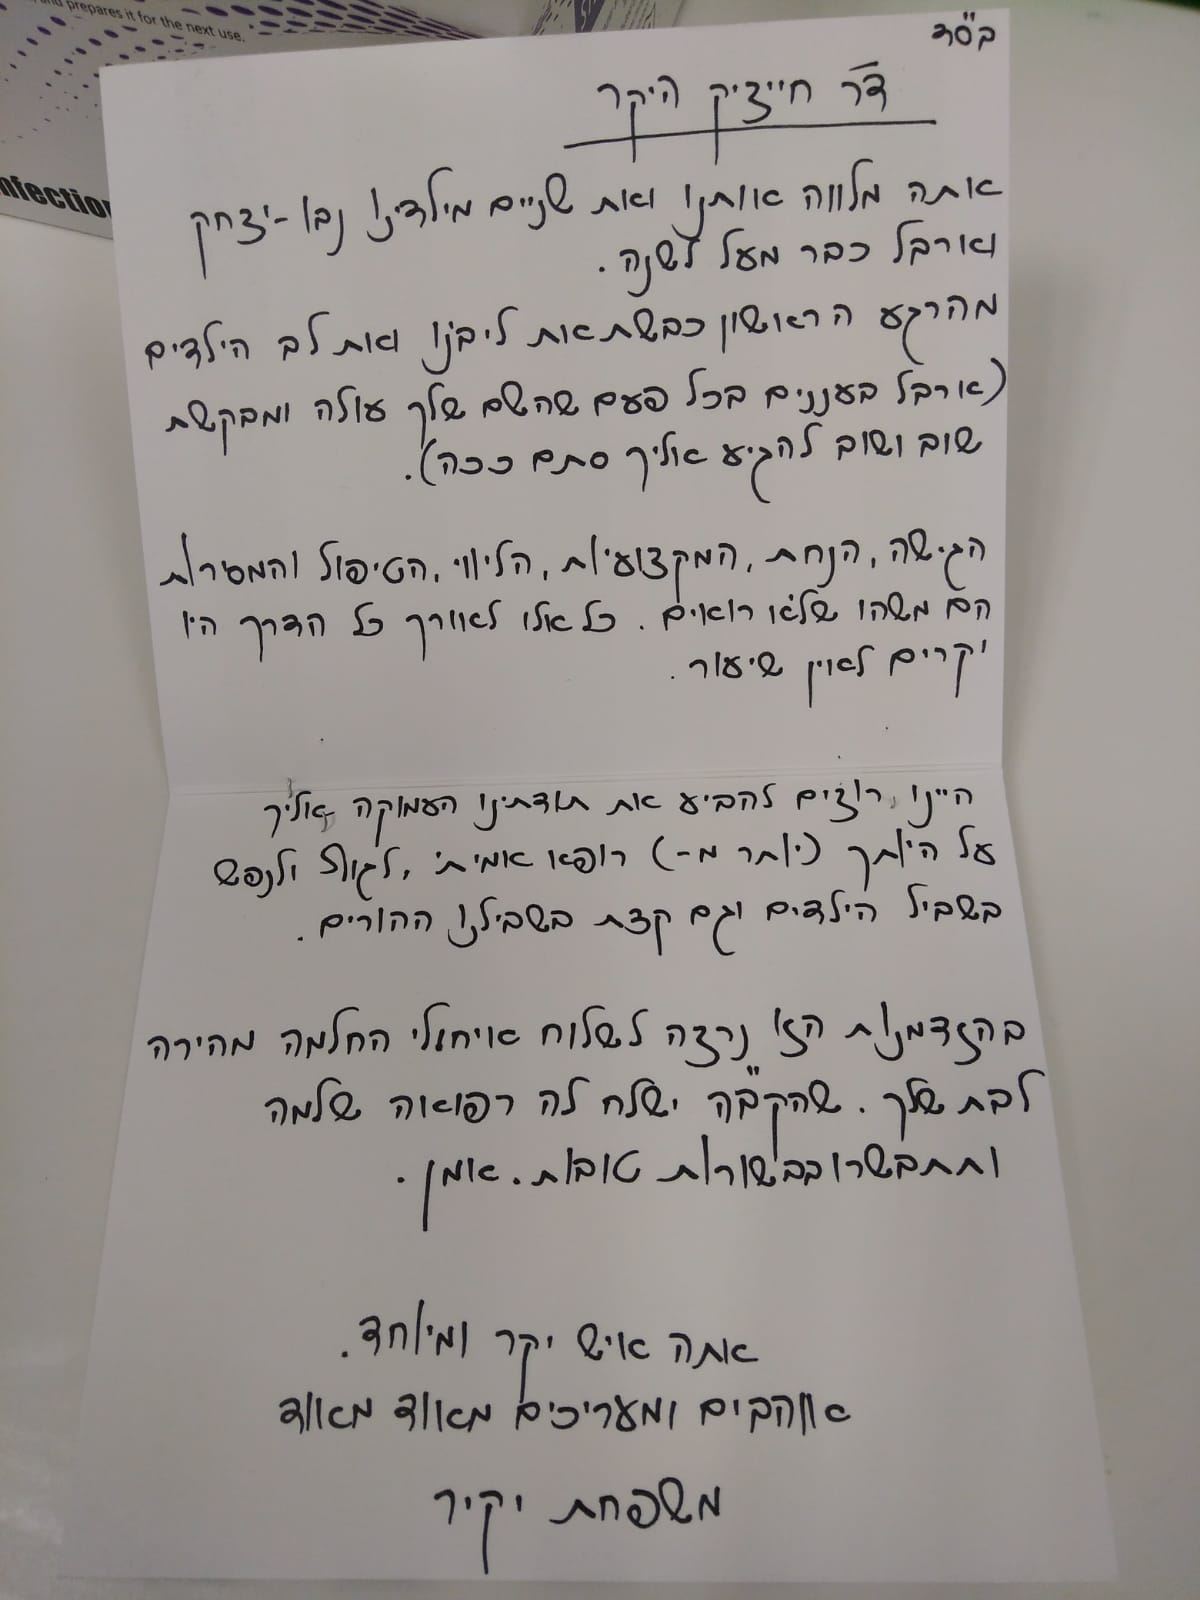 and prepares it for the next use.
nfection
בס"ד
ד"ר חייציק היקר
אתה מלווה אותנו ואת שניים מילדינו נבו-יצחק
וארבל כבר מעל לשנה.
מהרגע הראשון כבשת את ליבנו ואת לב הילדים
(ארבל בעננים בכל פעם שהשם שלך עולה ומבקשת
שוב ושוב להגיע אליך סתם ככה).
הגישה, הנחת, המקצועיות, הליווי, הטיפול והמסירות
הם משהו שלא רואים. כל אלו לאורך כל הדרך היו
יקרים לאין שיעור.
היינו רוצים להביע את תודתינו העמוקה אליך
על היותך (יותר מ-) רופא אמיתי, לגוף ולנפש
בשביל הילדים וגם קצת בשבילנו ההורים.
בהזדמנות הזו נרצה לשלוח איחולי החלמה מהירה
לבת שלך. שהקב"ה ישלח לה רפואה שלמה
ותתבשרו בבשורות טובות. אמן.
אתה איש יקר ומיוחד.
אוהבים ומעריכים מאוד מאוד
משפחת יקיר